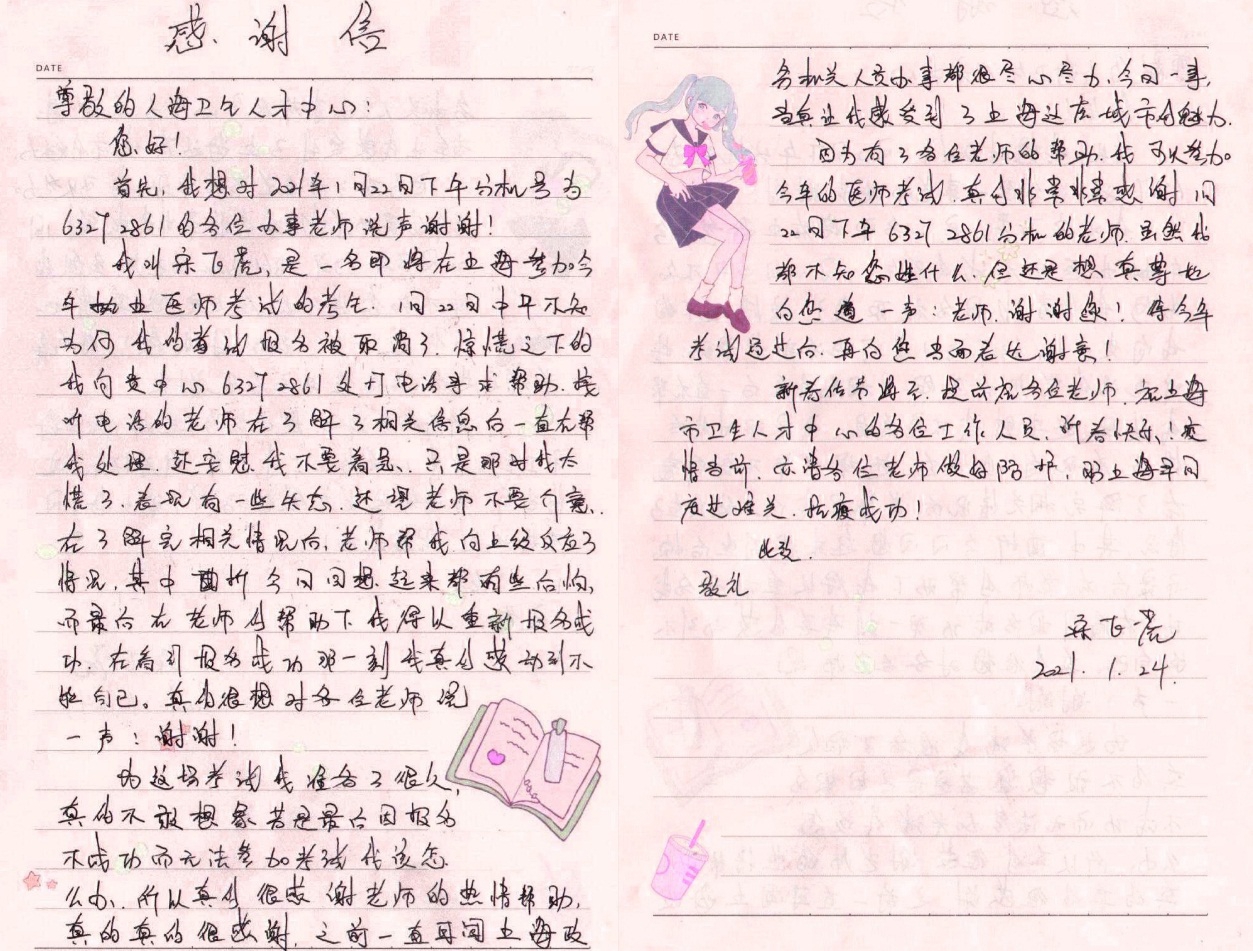 感谢信
DATE
尊敬的上海卫生人才中心：
您好！
首先，我想对2021年1月22日下午分机号为
6327 2861的各位办事老师说声谢谢！
我叫宋飞虎，是一名即将在上海参加今
年执业医师考试的考生．1月22日中午不知
为何我的考试报名被取消了．惊慌之下的
我向贵中心6327 2861处打电话寻求帮助．接
听电话的老师在了解了相关信息后一直在帮
我处理．还安慰我不要着急．只是那时我太
慌了．表现有一些失态．还望老师不要介意．
在了解完相关情况后，老师帮我向上级反应了
情况．其中曲折今日回想起来都有些后怕，
而最后在老师的帮助下我得以重新报名成
功．在看到报名成功那一刻我真的感动到不
能自已。真的很想对各位老师说
一声：谢谢！
为这场考试我准备了很久，
真的不敢想象若是最后因报名
不成功而无法参加考试我该怎
么办．所以真的很感谢老师的热情帮助，
真的真的很感谢．之前一直耳闻上海政
DATE
务机关人员办事都很尽心尽力．今日一事，
当真让我感受到了上海这座城市的魅力．
因为有了各位老师的帮助．我可以参加
今年的医师考试．真的非常非常感谢1月
22日下午6327 2861分机的老师．虽然我
都不知您姓什么．但还是想真挚地
向您道一声：老师．谢谢您！待今年
考试通过后．再向您当面表达谢意！
新春佳节将至．提前祝各位老师．祝上海
市卫生人才中心的各位工作人员．新春快乐！疫
情当前．亦请各位老师做好防护，愿上海早日
度过难关．抗疫成功！
此致．
敬礼
宋飞虎
2021．1．24．